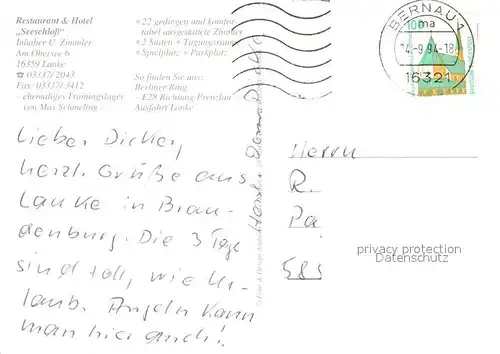 Restaurant & Hotel
„Seeschloß"
Inhaber U. Zimmler
Am Obersee 6
16359 Lanke
☎ 03337/2043
Fax: 03337/3412
- ehemaliges Trainingslager
von Max Schmeling -
• 22 gediegen und komfor-
tabel ausgestattete Zimmer
• 2 Stuben • Tagungsraum
• Spielplatz • Parkplatz
So finden Sie uns:
Berliner Ring
- E28 Richtung Prenzlau
Ausfahrt Lanke
BERNAU 1
ma
-9.94-18
16321
100
Lieber Dicker,
herzl. Grüße aus
Lanke in Bran-
denburg. Die 3 Tage
sind toll, wie Ur-
laub. Angeln kann
man hier auch!
Herrn
R.
Pa
585
privacy protection
Datenschutz